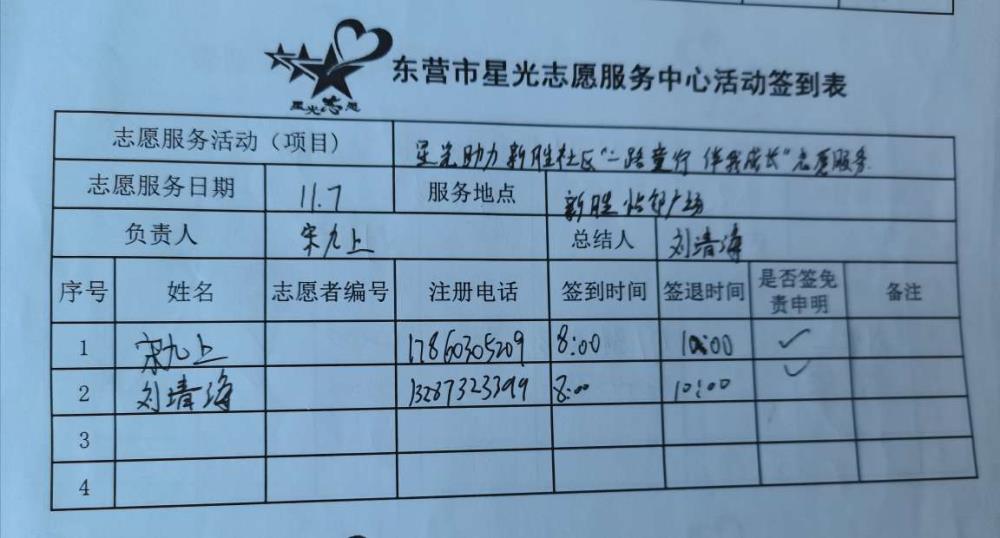 星光志愿
东营市星光志愿服务中心活动签到表
志愿服务活动（项目） 星光助力新胜社区“一路童行 伴我成长”志愿服务
志愿服务日期 11.7 服务地点 新胜 广场
负责人 宋九上 总结人 刘清海
序号 姓名 志愿者编号 注册电话 签到时间 签退时间 是否签免责申明 备注
1 宋九上 17860305209 8:00 10:00 ✓
2 刘清海 13287323399 8:00 10:00 ✓
3
4